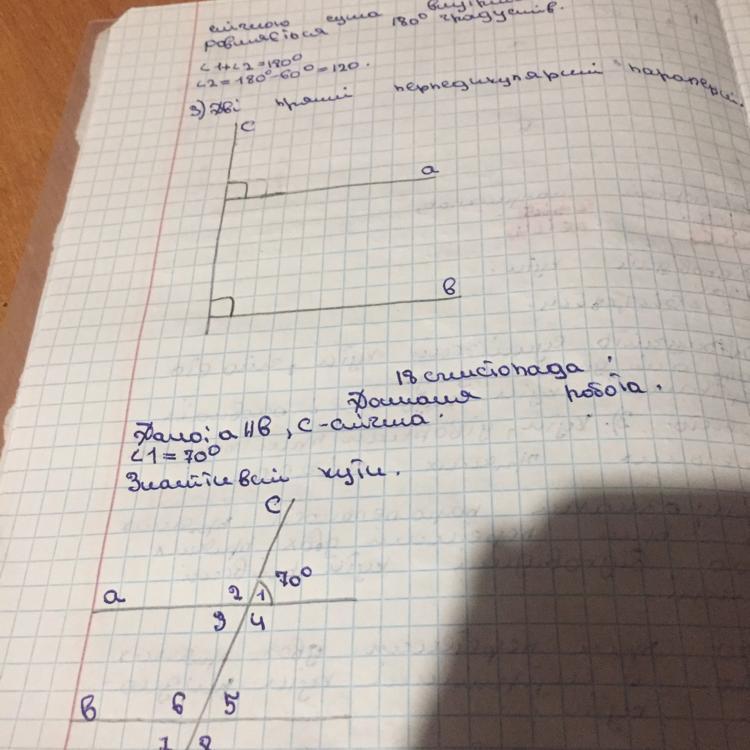 січною сума внутрішн
ровнястося 180° градусів.
∠1+∠2=180°
∠2=180°-60°=120.
3) Дві прямі перпедикуляриі парарерні.
c
a
в
18 листопада.
Домашня робота.
Дано: a||в, с-січна.
∠1=70°
Знайти всі кути.
c
70°
a
2 1
3 4
в
6 5
7 8